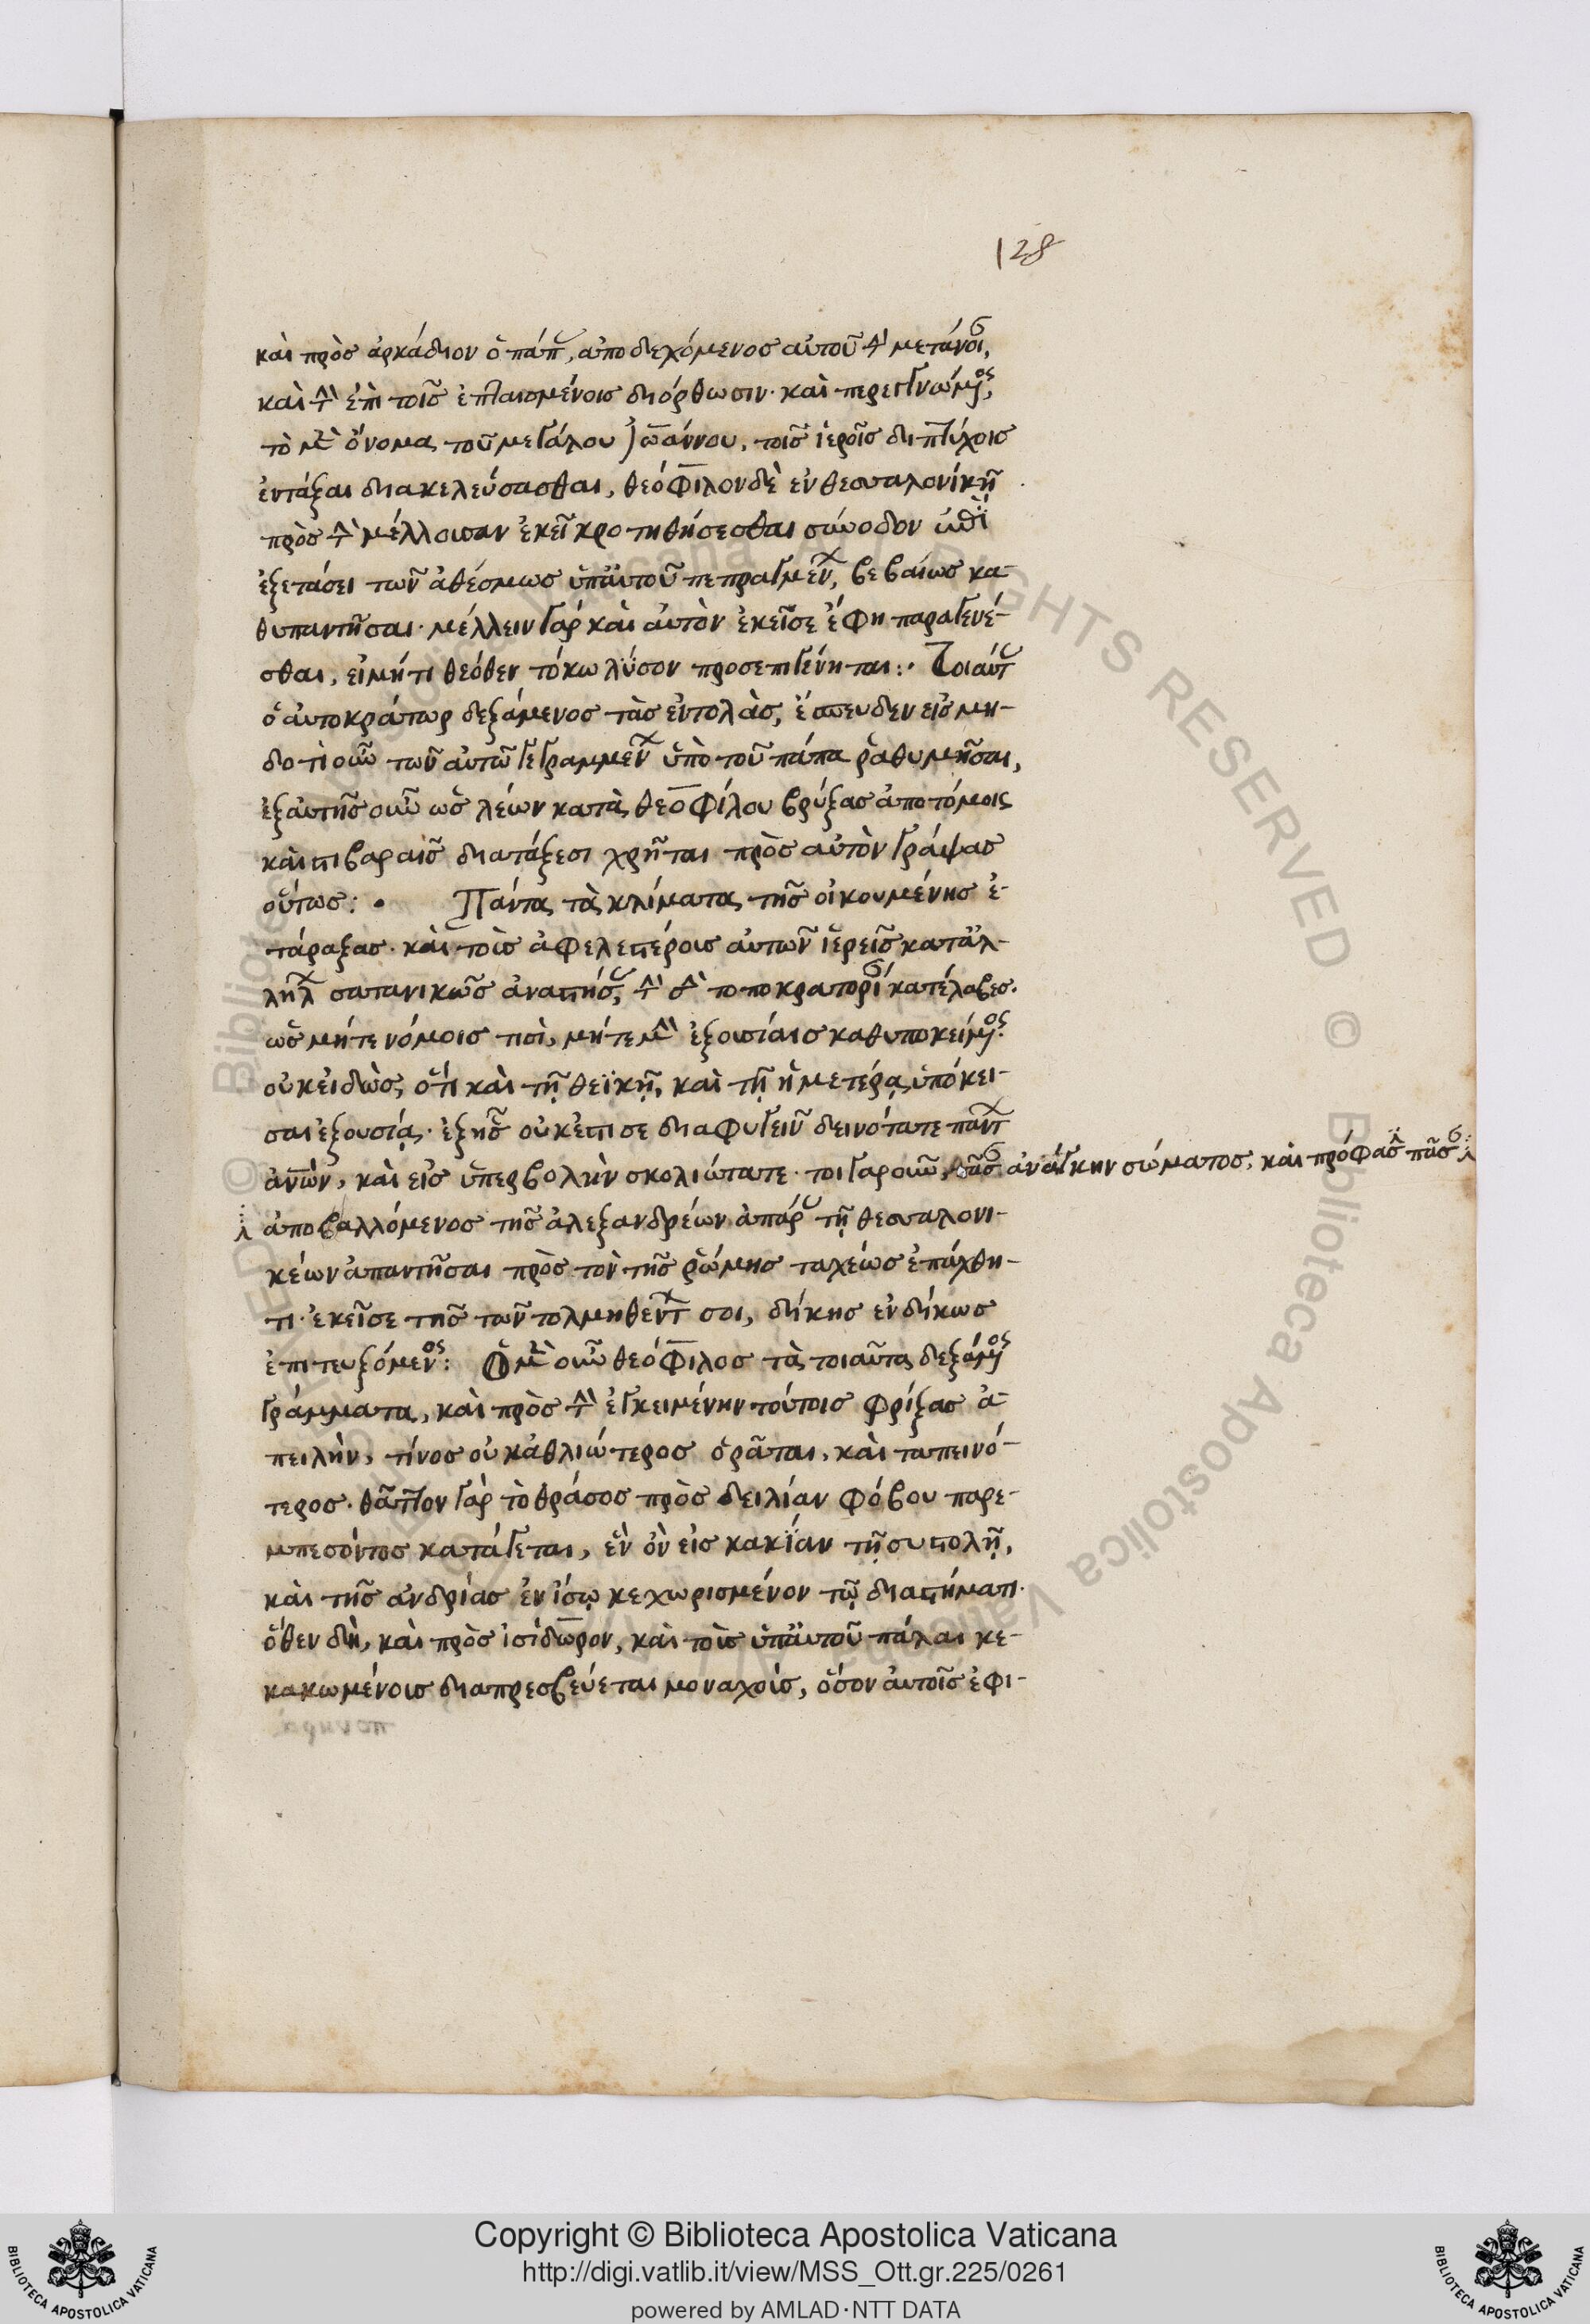 128
καὶ πρὸς ἀρκάδιον ὁ πάπας, ἀποδεχόμενος αὐτοῦ τὴν μετάνοιαν,
καὶ τὴν ἐπὶ τοῖς ἐπταισμένοις διόρθωσιν· καὶ περὶ γνώμης,
τὸ μὲν ὄνομα τοῦ μεγάλου Ἰωάννου, τοῖς ἱεροῖς διπτύχοις
ἐντάξαι διακελεύσασθαι, θεόφιλον δὲ ἐν θεσσαλονίκῃ
πρὸς τὴν μέλλουσαν ἐκεῖ κροτηθήσεσθαι σύνοδον
ἐξετάσει τῶν ἀθέσμως ὑπ' αὐτοῦ πεπραγμένων, βεβαίως κα-
θυπαντῆσαι· μέλλειν γὰρ καὶ αὐτὸν ἐκεῖσε ἔφη παραγενέ-
σθαι, εἰ μή τι θεόθεν τὸ κωλῦσον προσεπιγένηται:· Τοιαύτας
ὁ αὐτοκράτωρ δεξάμενος τὰς ἐντολὰς, ἔσπευδεν εἰς μη-
δοτιοῦν τῶν αὐτῶ γεγραμμένων ὑπὸ τοῦ πάπα ῥαθυμῆσαι,
ἐξαυτῆς οὖν ὡς λέων κατὰ θεοφίλου βρύξας ἀποτόμοις
καὶ στιβαραῖς διατάξεσι χρῆται πρὸς αὐτὸν γράψας
οὕτως:· Πάντα τὰ κλίματα τῆς οἰκουμένης ἐ-
τάραξας· καὶ τοῖς ἀφελεστέροις αὐτῶν ἱερεῖς κατ' ἀλ-
λήλων σατανικῶς ἀναστήσας, τὴν τοποκρατορίαν κατέλαβες.
ὡς μήτε νόμοις τισὶ, μήτε μὴν ἐξουσίαις καθυποκείμενος·
οὐκ εἰδὼς, ὅτι καὶ τῇ θεϊκῇ, καὶ τῇ ἡμετέρᾳ ὑπόκει-
σαι ἐξουσίᾳ· ἐξ ἧς οὐκ ἔστι σε διαφυγεῖν δεινότατε πάντων
ἀνῶν, καὶ εἰς ὑπερβολὴν σκολιώτατε· τοιγαροῦν πᾶσαν ἀνάγκην σώματος, καὶ πρόφασιν πᾶσαν
ἀποβαλλόμενος τῆς ἀλεξανδρέων ἀπάρας τῇ θεσσαλονι-
κέων ἀπαντῆσαι πρὸς τὸν τῆς ῥώμης ταχέως ἐπάχθη-
τι· ἐκεῖσε τῆς τῶν τολμηθέντων σοι, δίκης ἐνδίκως
ἐπιτευξόμενος: Ὁ μὲν οὖν θεόφιλος τὰ τοιαῦτα δεξάμενος
γράμματα, καὶ πρὸς τὴν ἐγκειμένην τούτοις φρίξας ἀ-
πειλὴν, τίνος οὐκ ἀθλιώτερος ὁρᾶται, καὶ ταπεινό-
τερος· θᾶττον γὰρ τὸ θράσος πρὸς δειλίαν φόβου παρε-
μπεσόντος κατάγεται, ἓν ὂν εἰς κακίαν τῇ συστολῇ,
καὶ τῆς ἀνδρίας ἐν ἴσῳ κεχωρισμένον τῷ διαστήματι·
ὅθεν δὴ, καὶ πρὸς ἰσίδωρον, καὶ τοῖς ὑπ' αὐτοῦ πάλαι κε-
κακωμένοις διαπρεσβεύεται μοναχοῖς, ὅσον αὐτοῖς ἐφι-
Copyright © Biblioteca Apostolica Vaticana
http://digi.vatlib.it/view/MSS_Ott.gr.225/0261
powered by AMLAD·NTT DATA